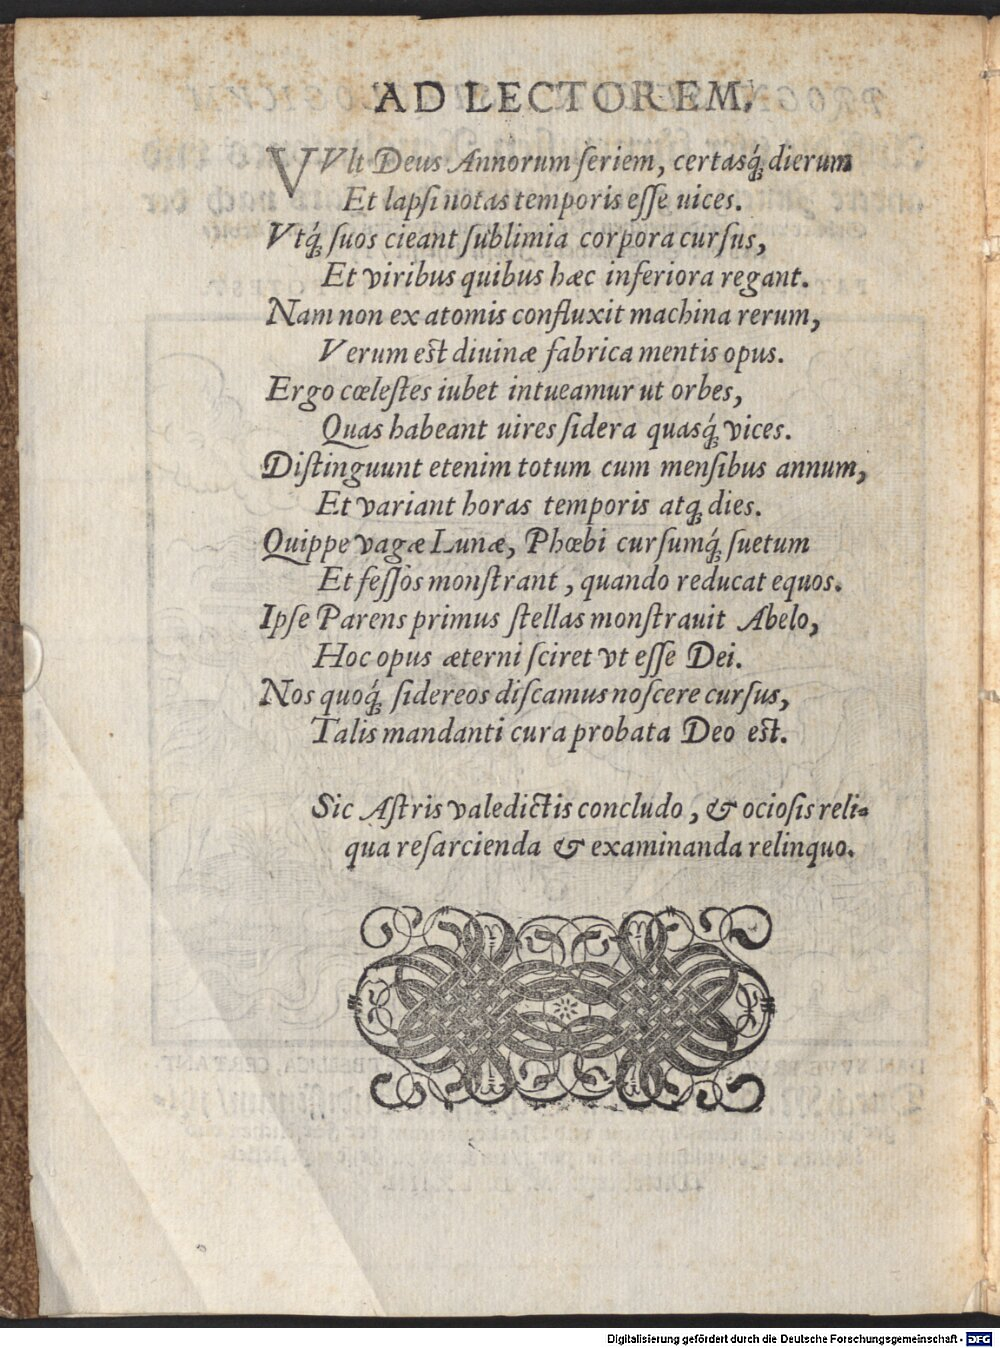 AD LECTOREM.
VVlt Deus Annorum ſeriem, certasq́; dierum
Et lapſi notas temporis eſſe uices.
Vtq́; ſuos cieant ſublimia corpora curſus,
Et viribus quibus hæc inferiora regant.
Nam non ex atomis confluxit machina rerum,
Verum est diuinæ fabrica mentis opus.
Ergo cœleſtes iubet intueamur ut orbes,
Quas habeant uires ſidera quasq́; vices.
Diſtinguunt etenim totum cum menſibus annum,
Et variant horas temporis atq; dies.
Quippe vagæ Lunæ, Phœbi curſumq́; ſuetum
Et feſſos monſtrant, quando reducat equos.
Ipſe Parens primus ſtellas monſtrauit Abelo,
Hoc opus æterni ſciret vt eſſe Dei.
Nos quoq́; ſidereos diſcamus noſcere curſus,
Talis mandanti cura probata Deo est.
Sic Aſtris valedictis concludo, & ocioſis reli-
qua reſarcienda & examinanda relinquo.
Digitalisierung gefördert durch die Deutsche Forschungsgemeinschaft - DFG